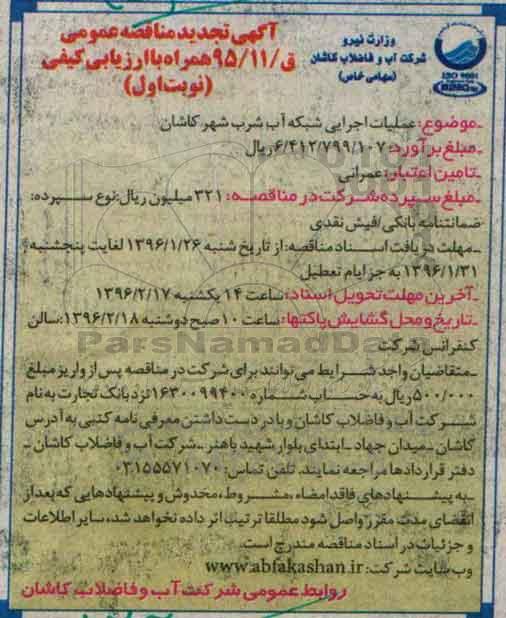 آگهی تجدید مناقصه عمومی
ق/۹۵/۱۱ همراه با ارزیابی کیفی
(نوبت اول)
وزارت نیرو
شرکت آب و فاضلاب کاشان
(سهامی خاص)
ISO 9001
ـ موضوع: عملیات اجرایی شبکه آب شرب شهر کاشان
ـ مبلغ برآورد: ۶/۴۱۲/۷۹۹/۱۰۷ ریال
ـ تامین اعتبار: عمرانی
ـ مبلغ سپرده شرکت در مناقصه: ۳۲۱ میلیون ریال: نوع سپرده:
ضمانتنامه بانکی/فیش نقدی
ـ مهلت دریافت اسناد مناقصه: از تاریخ شنبه ۱۳۹۶/۱/۲۶ لغایت پنجشنبه
۱۳۹۶/۱/۳۱ به جز ایام تعطیل
ـ آخرین مهلت تحویل اسناد: ساعت ۱۴ یکشنبه ۱۳۹۶/۲/۱۷
ـ تاریخ و محل گشایش پاکتها: ساعت ۱۰ صبح دوشنبه ۱۳۹۶/۲/۱۸: سالن
کنفرانس شرکت
ـ متقاضیان واجد شرایط می توانند برای شرکت در مناقصه پس از واریز مبلغ
۵۰۰/۰۰۰ ریال به حساب شماره ۱۶۳۰۰۹۹۴۰۰ نزد بانک تجارت به نام
شرکت آب و فاضلاب کاشان و با در دست داشتن معرفی نامه کتبی به آدرس
کاشان ـ میدان جهاد ـ ابتدای بلوار شهید باهنر ـ شرکت آب و فاضلاب کاشان ـ
دفتر قراردادها مراجعه نمایند. تلفن تماس: ۰۳۱۵۵۵۷۱۰۷۰
ـ به پیشنهادهای فاقد امضاء، مشروط، مخدوش و پیشنهادهایی که بعد از
انقضای مدت مقرر واصل شود مطلقا ترتیب اثر داده نخواهد شد، سایر اطلاعات
و جزئیات در اسناد مناقصه مندرج است.
وب سایت شرکت: www.abfakashan.ir
روابط عمومی شرکت آب و فاضلاب کاشان
ParsNamadData